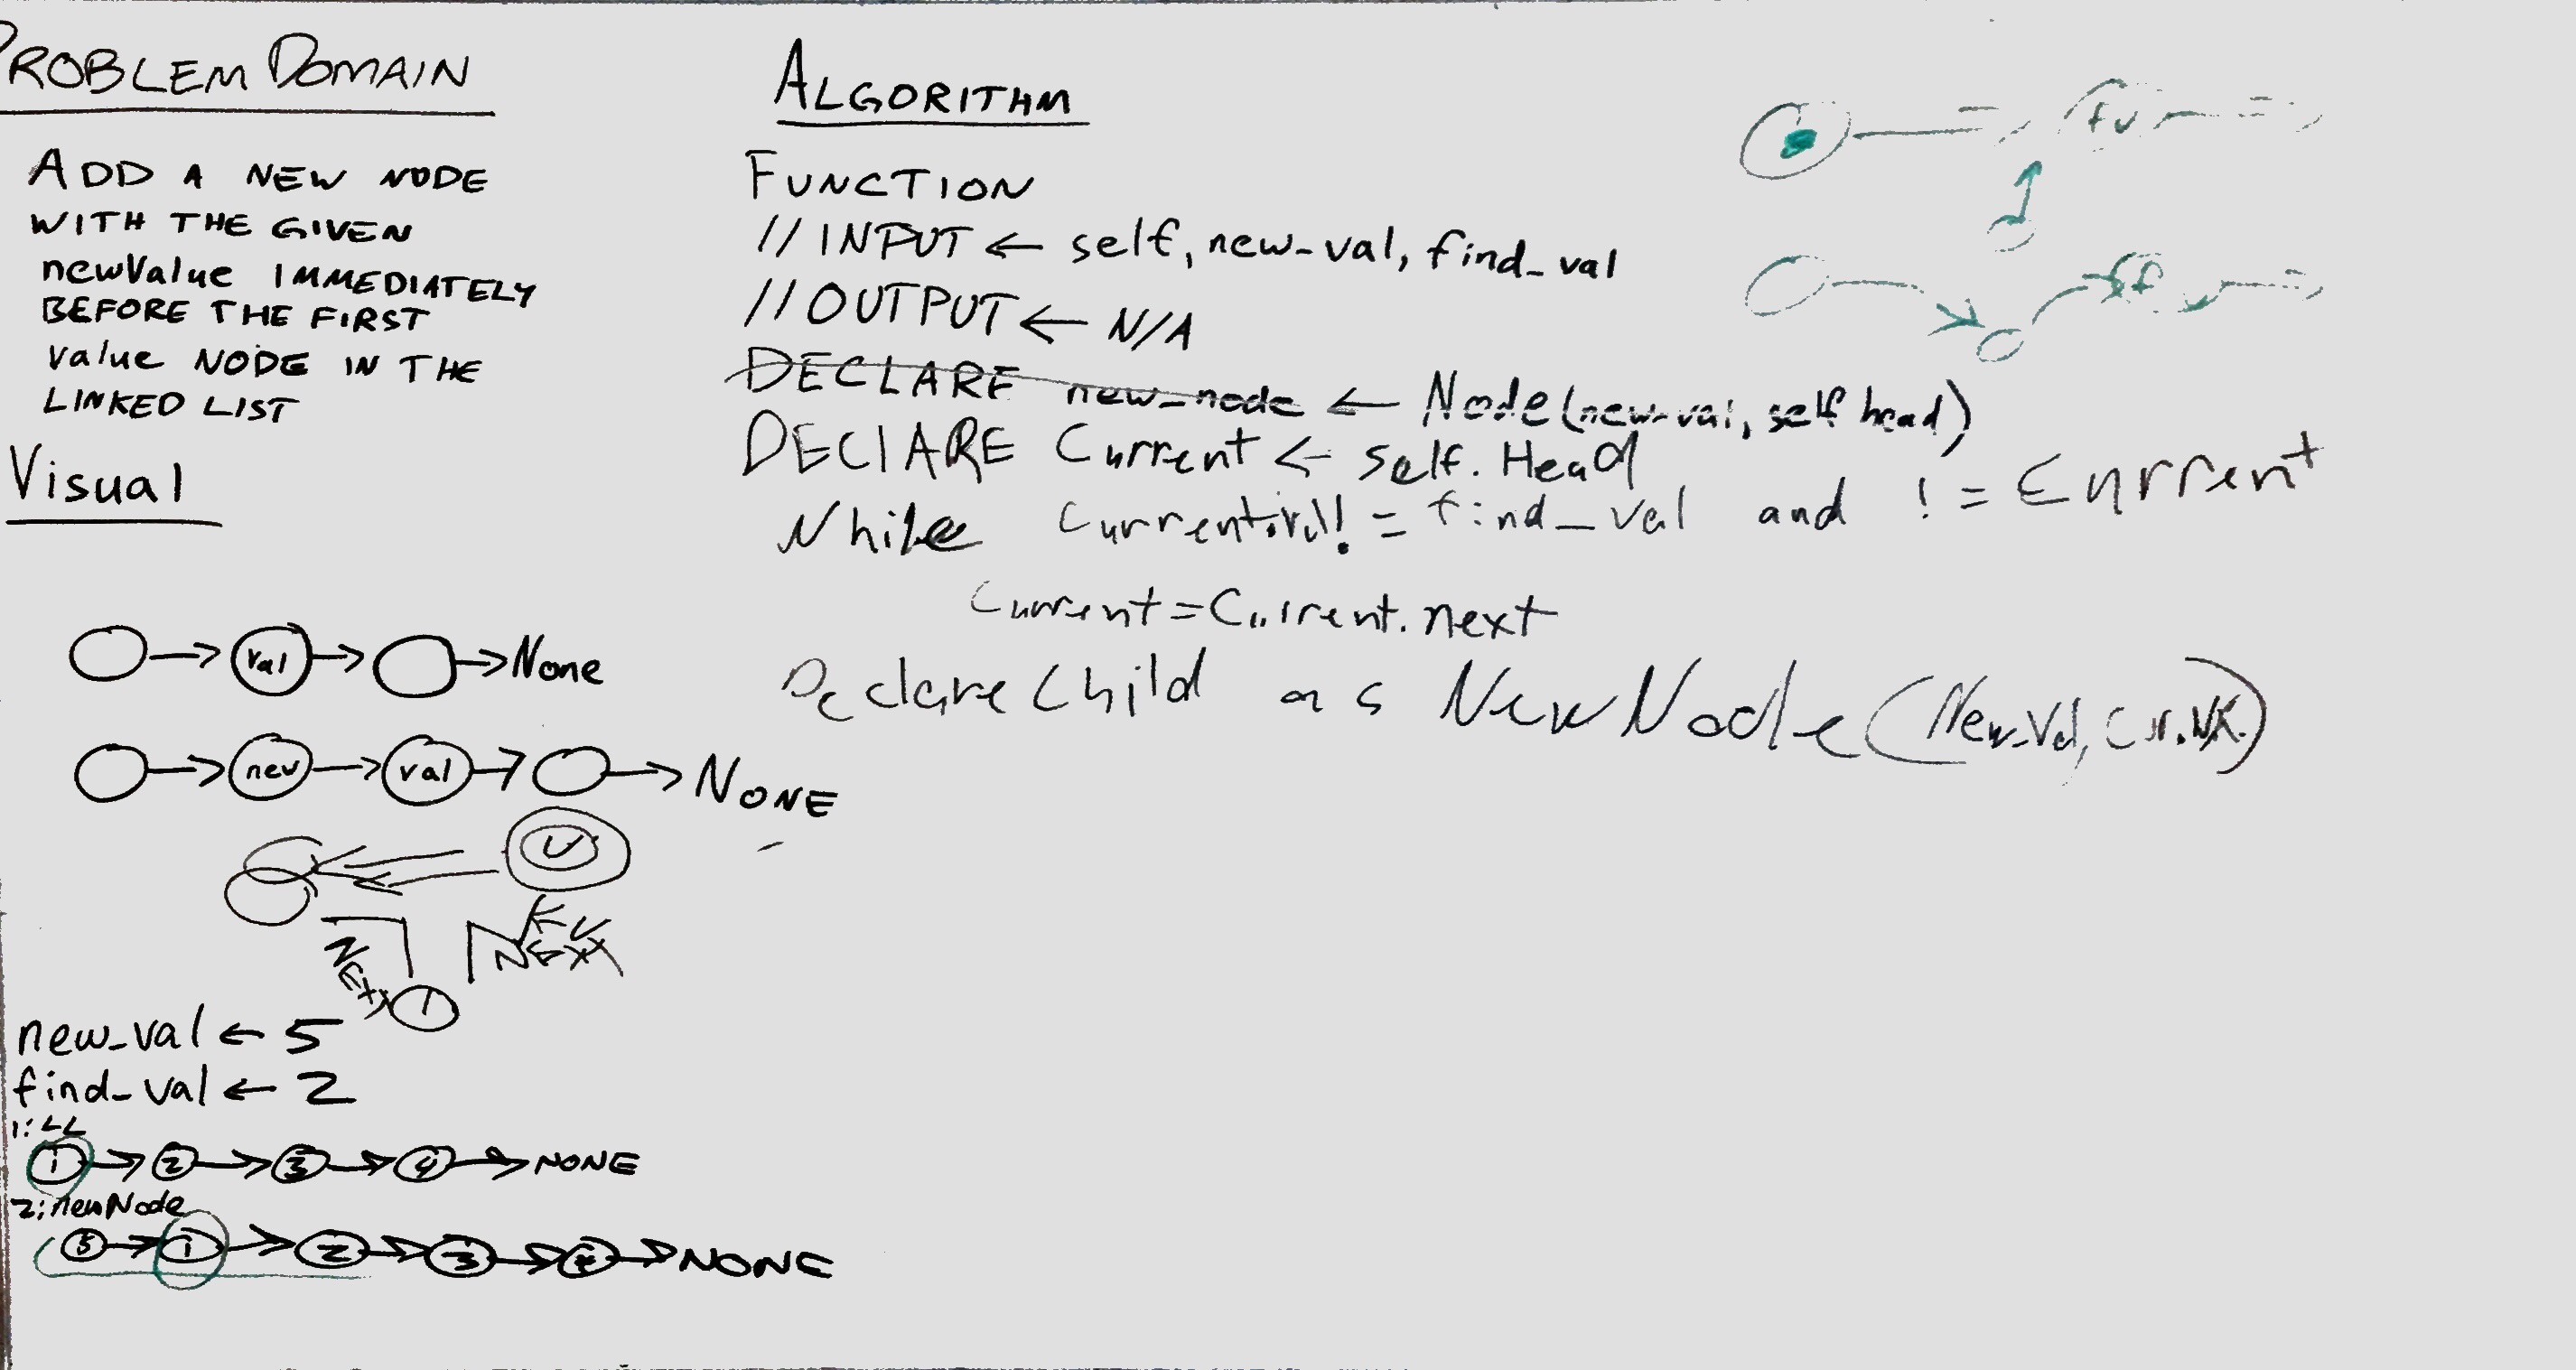 PROBLEM DOMAIN
ADD A NEW NODE
WITH THE GIVEN
newValue IMMEDIATELY
BEFORE THE FIRST
value NODE IN THE
LINKED LIST
Visual
val None
new val NONE
U
NEXT
NEXT
1
new_val ← 5
find_val ← 2
1: LL
1 → 2 → 3 → 4 → NONE
2: newNode
5 → 1 → 2 → 3 → 4 → NONE
ALGORITHM
FUNCTION
// INPUT ← self, new_val, find_val
// OUTPUT ← N/A
DECLARE new_node ← Node(new_val, self head)
DEClARE Current ← self. Head
While Current.val != find_val and != Current
Current = Current. next
Declare Child as New Node (New_Val,
fv
f